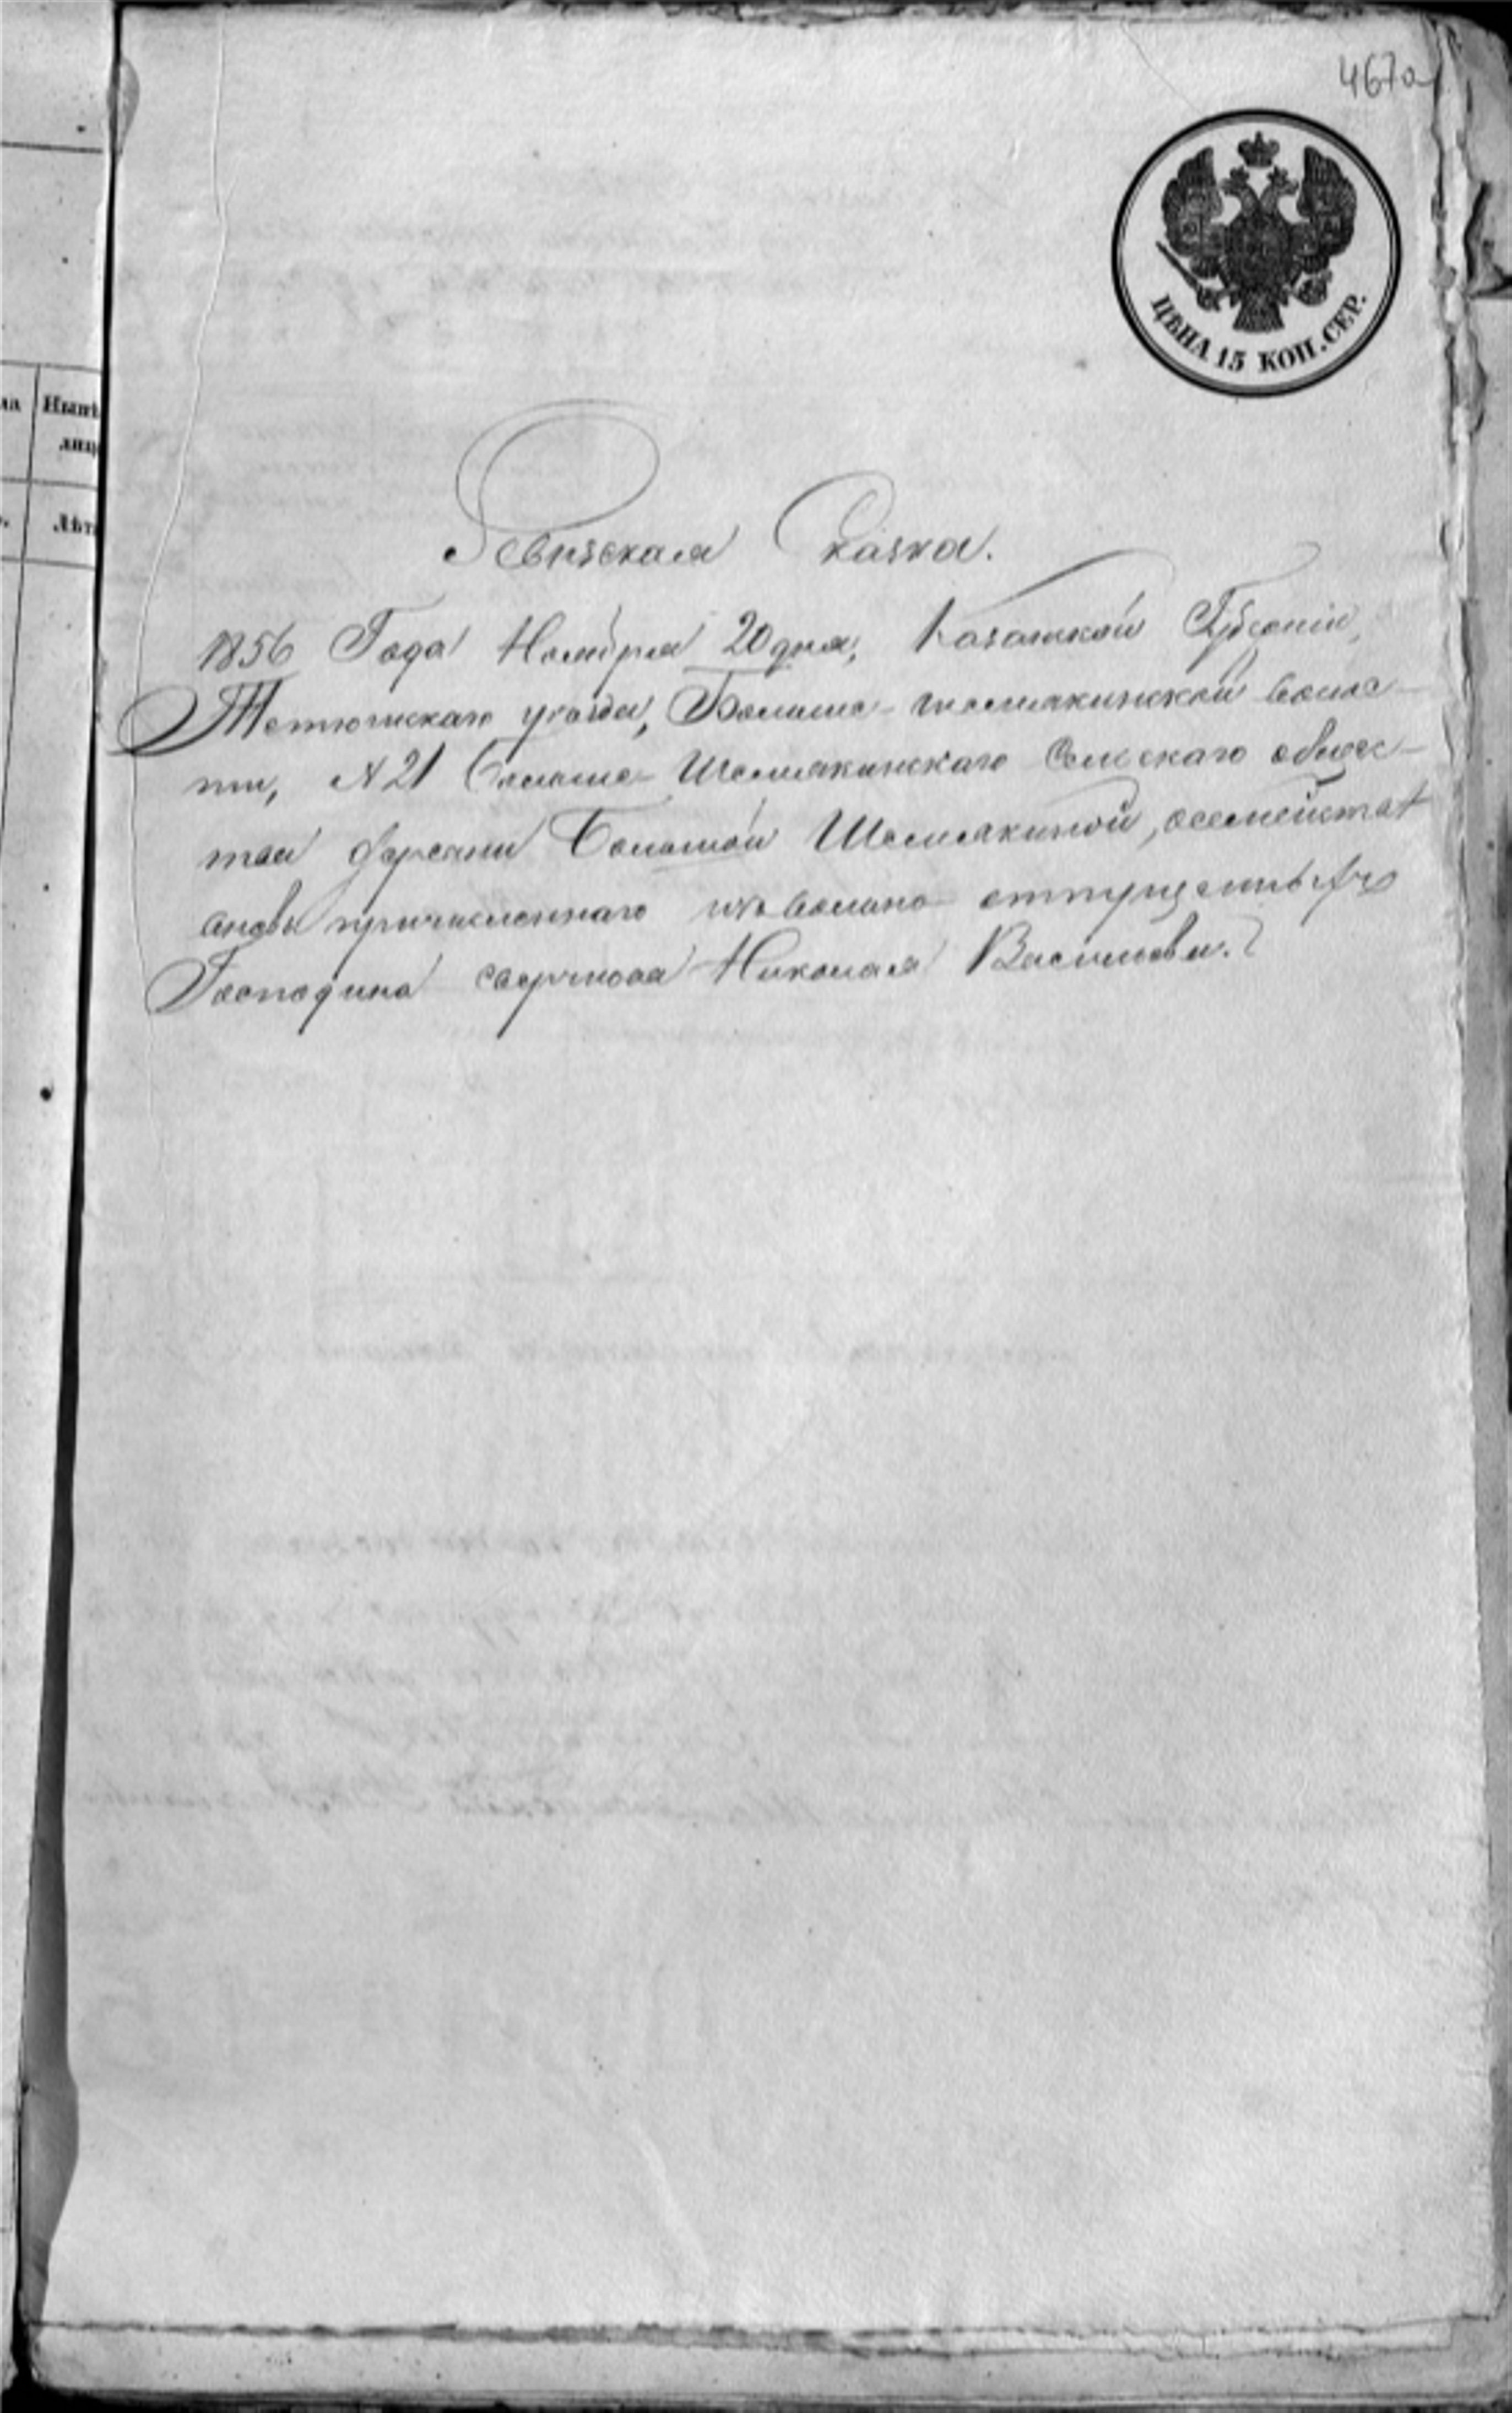 467а
ЦѢНА 15 КОП. СЕР.
Ревизская Сказка.
1856 Года Ноября 20 дня, Казанской Губерніи,
Тетюшскаго уѣзда, Больше-шемякинской волос-
ти, № 21 Больше-Шемякинскаго Сельскаго общес-
тва деревни Большой Шемякиной, о семействѣ
вновь причисленнаго изъ вольно отпущенныхъ
Господина Николая Васильева.
ла Нынѣ
лиц
Лѣт